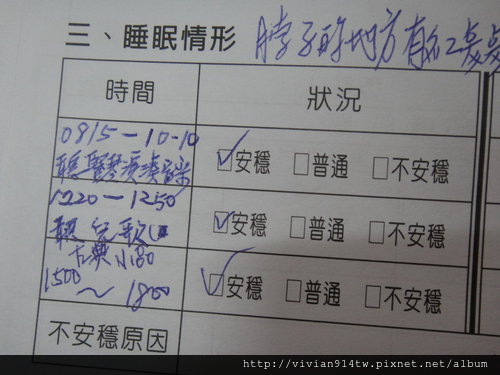 三、睡眠情形 脖子的地方有紅
時間 狀況
0815-10-10
聽豎琴演奏 ☑安穩 □普通 □不安穩
1220-1250
聽兒歌 ☑安穩 □普通 □不安穩
古典
1500~1800 ☑安穩 □普通 □不安穩
不安穩原因
http://vivian914tw.pixnet.net/album